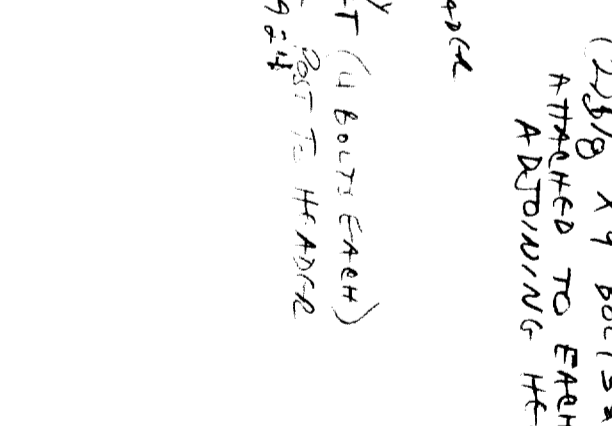 (2) 5/8 x 9 BOLTS &
ATTACHED TO EACH
ADJOINING HE-
ADER
-T (4 BOLTS EACH)
POST TO HEADER